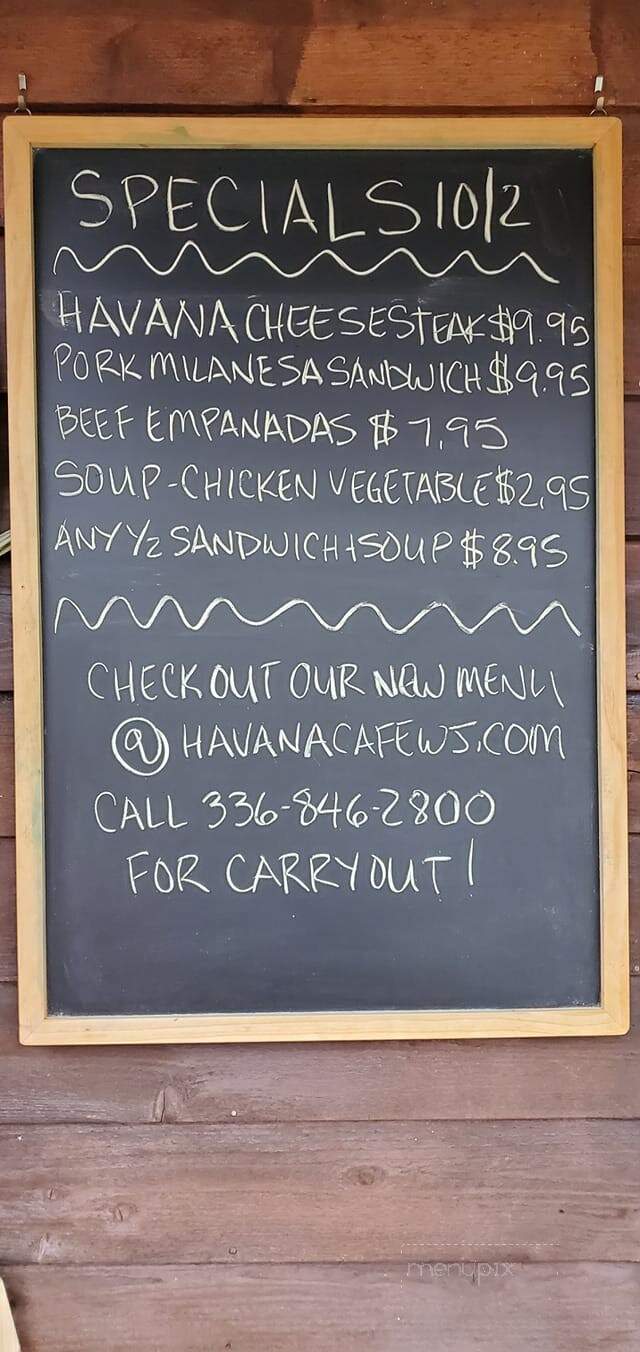 SPECIALS 10/2
HAVANA CHEESESTEAK $9.95
PORK MILANESA SANDWICH $9.95
BEEF EMPANADAS $7.95
SOUP-CHICKEN VEGETABLE $2.95
ANY 1/2 SANDWICH + SOUP $8.95
CHECK OUT OUR NEW MENU
@ HAVANACAFEWJ.COM
CALL 336-846-2800
FOR CARRYOUT!
menupix